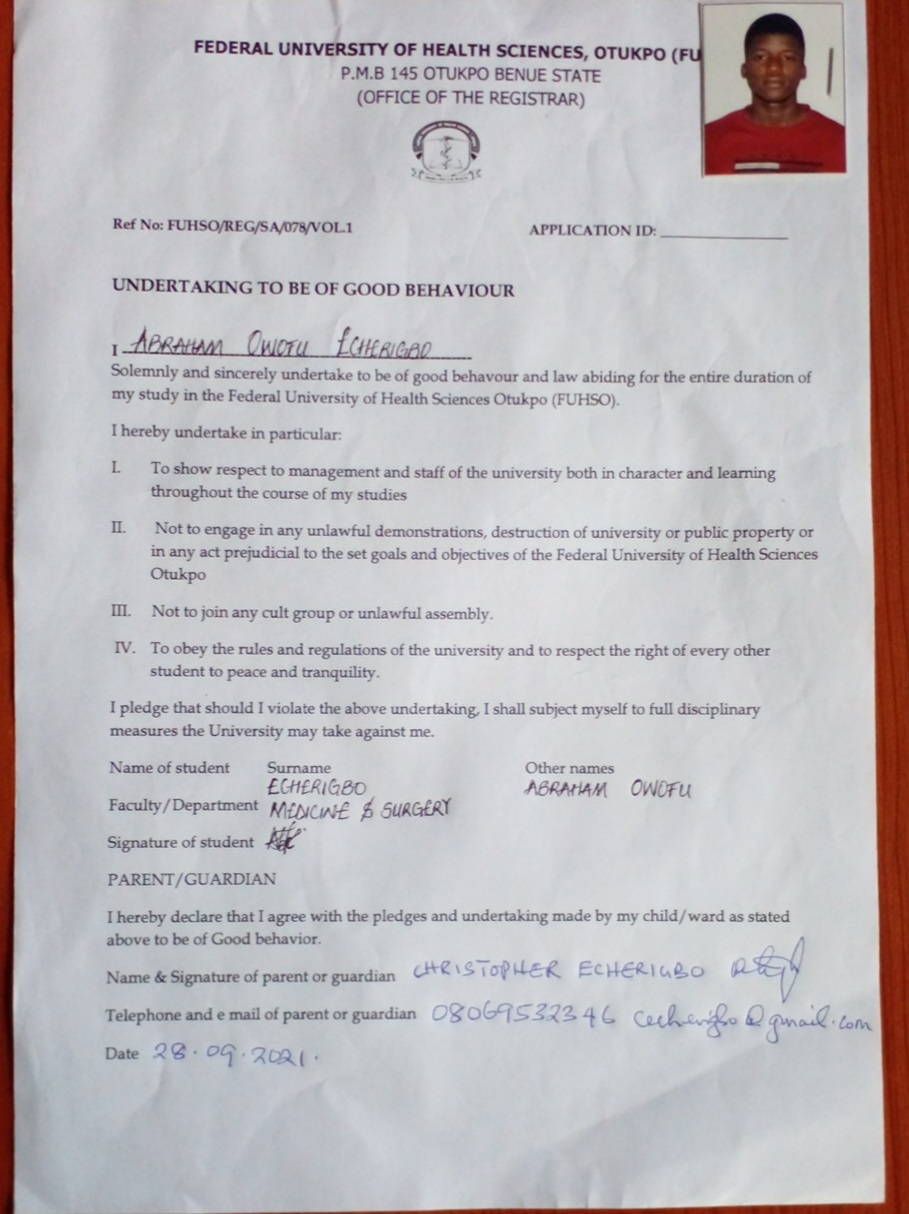 FEDERAL UNIVERSITY OF HEALTH SCIENCES, OTUKPO (FU
P.M.B 145 OTUKPO BENUE STATE
(OFFICE OF THE REGISTRAR)
Ref No: FUHSO/REG/SA/078/VOL.1 APPLICATION ID: ______________
UNDERTAKING TO BE OF GOOD BEHAVIOUR
I ABRAHAM OWOFU ECHERIGBO
Solemnly and sincerely undertake to be of good behavour and law abiding for the entire duration of
my study in the Federal University of Health Sciences Otukpo (FUHSO).
I hereby undertake in particular:
I. To show respect to management and staff of the university both in character and learning
throughout the course of my studies
II. Not to engage in any unlawful demonstrations, destruction of university or public property or
in any act prejudicial to the set goals and objectives of the Federal University of Health Sciences
Otukpo
III. Not to join any cult group or unlawful assembly.
IV. To obey the rules and regulations of the university and to respect the right of every other
student to peace and tranquility.
I pledge that should I violate the above undertaking, I shall subject myself to full disciplinary
measures the University may take against me.
Name of student Surname Other names
ECHERIGBO ABRAHAM OWOFU
Faculty/Department MEDICINE & SURGERY
Signature of student
PARENT/GUARDIAN
I hereby declare that I agree with the pledges and undertaking made by my child/ward as stated
above to be of Good behavior.
Name & Signature of parent or guardian CHRISTOPHER ECHERIGBO
Telephone and e mail of parent or guardian 08069532346 cecherigbo@gmail.com
Date 28.09.2021.